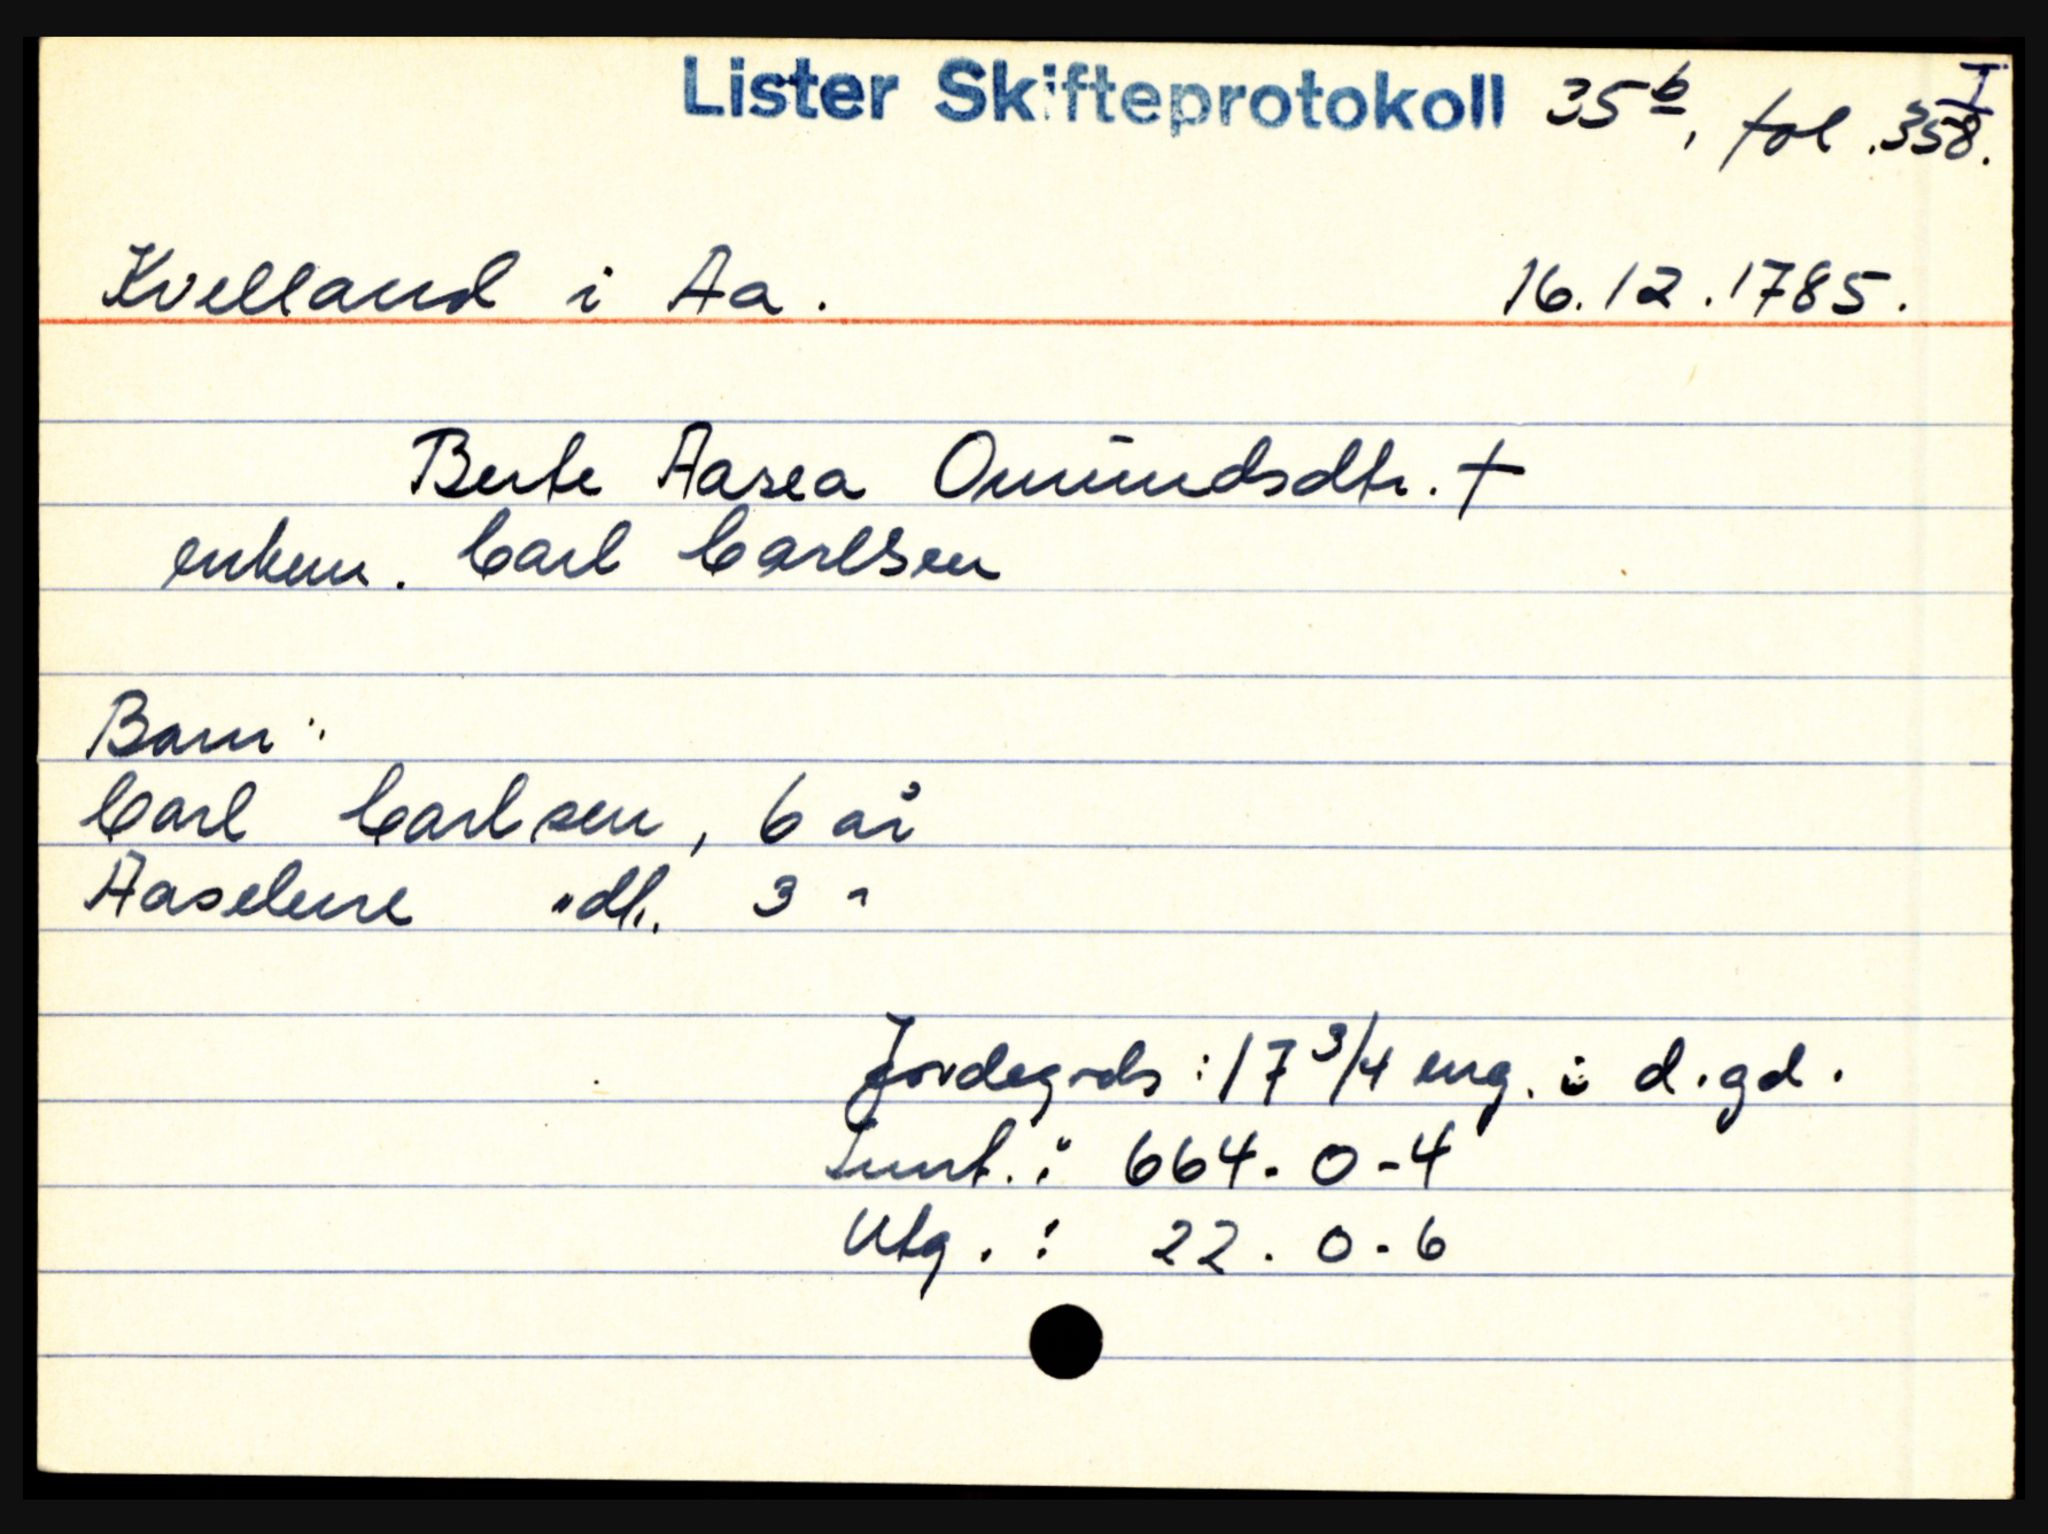 Lister Skifteprotokoll 35b, fol. 358.
I
Kvelland i Aa. 16.12.1785.
Berte Aasea Omundsdtr. †
enkem. Carl Carlsen
Barn:
Carl Carlsen, 6 år
Aaselene " dtr. 3 "
Jordegods: 17 3/4 eng. i d. gd.
Innt.: 664-0-4
Utg.: 22-0-6